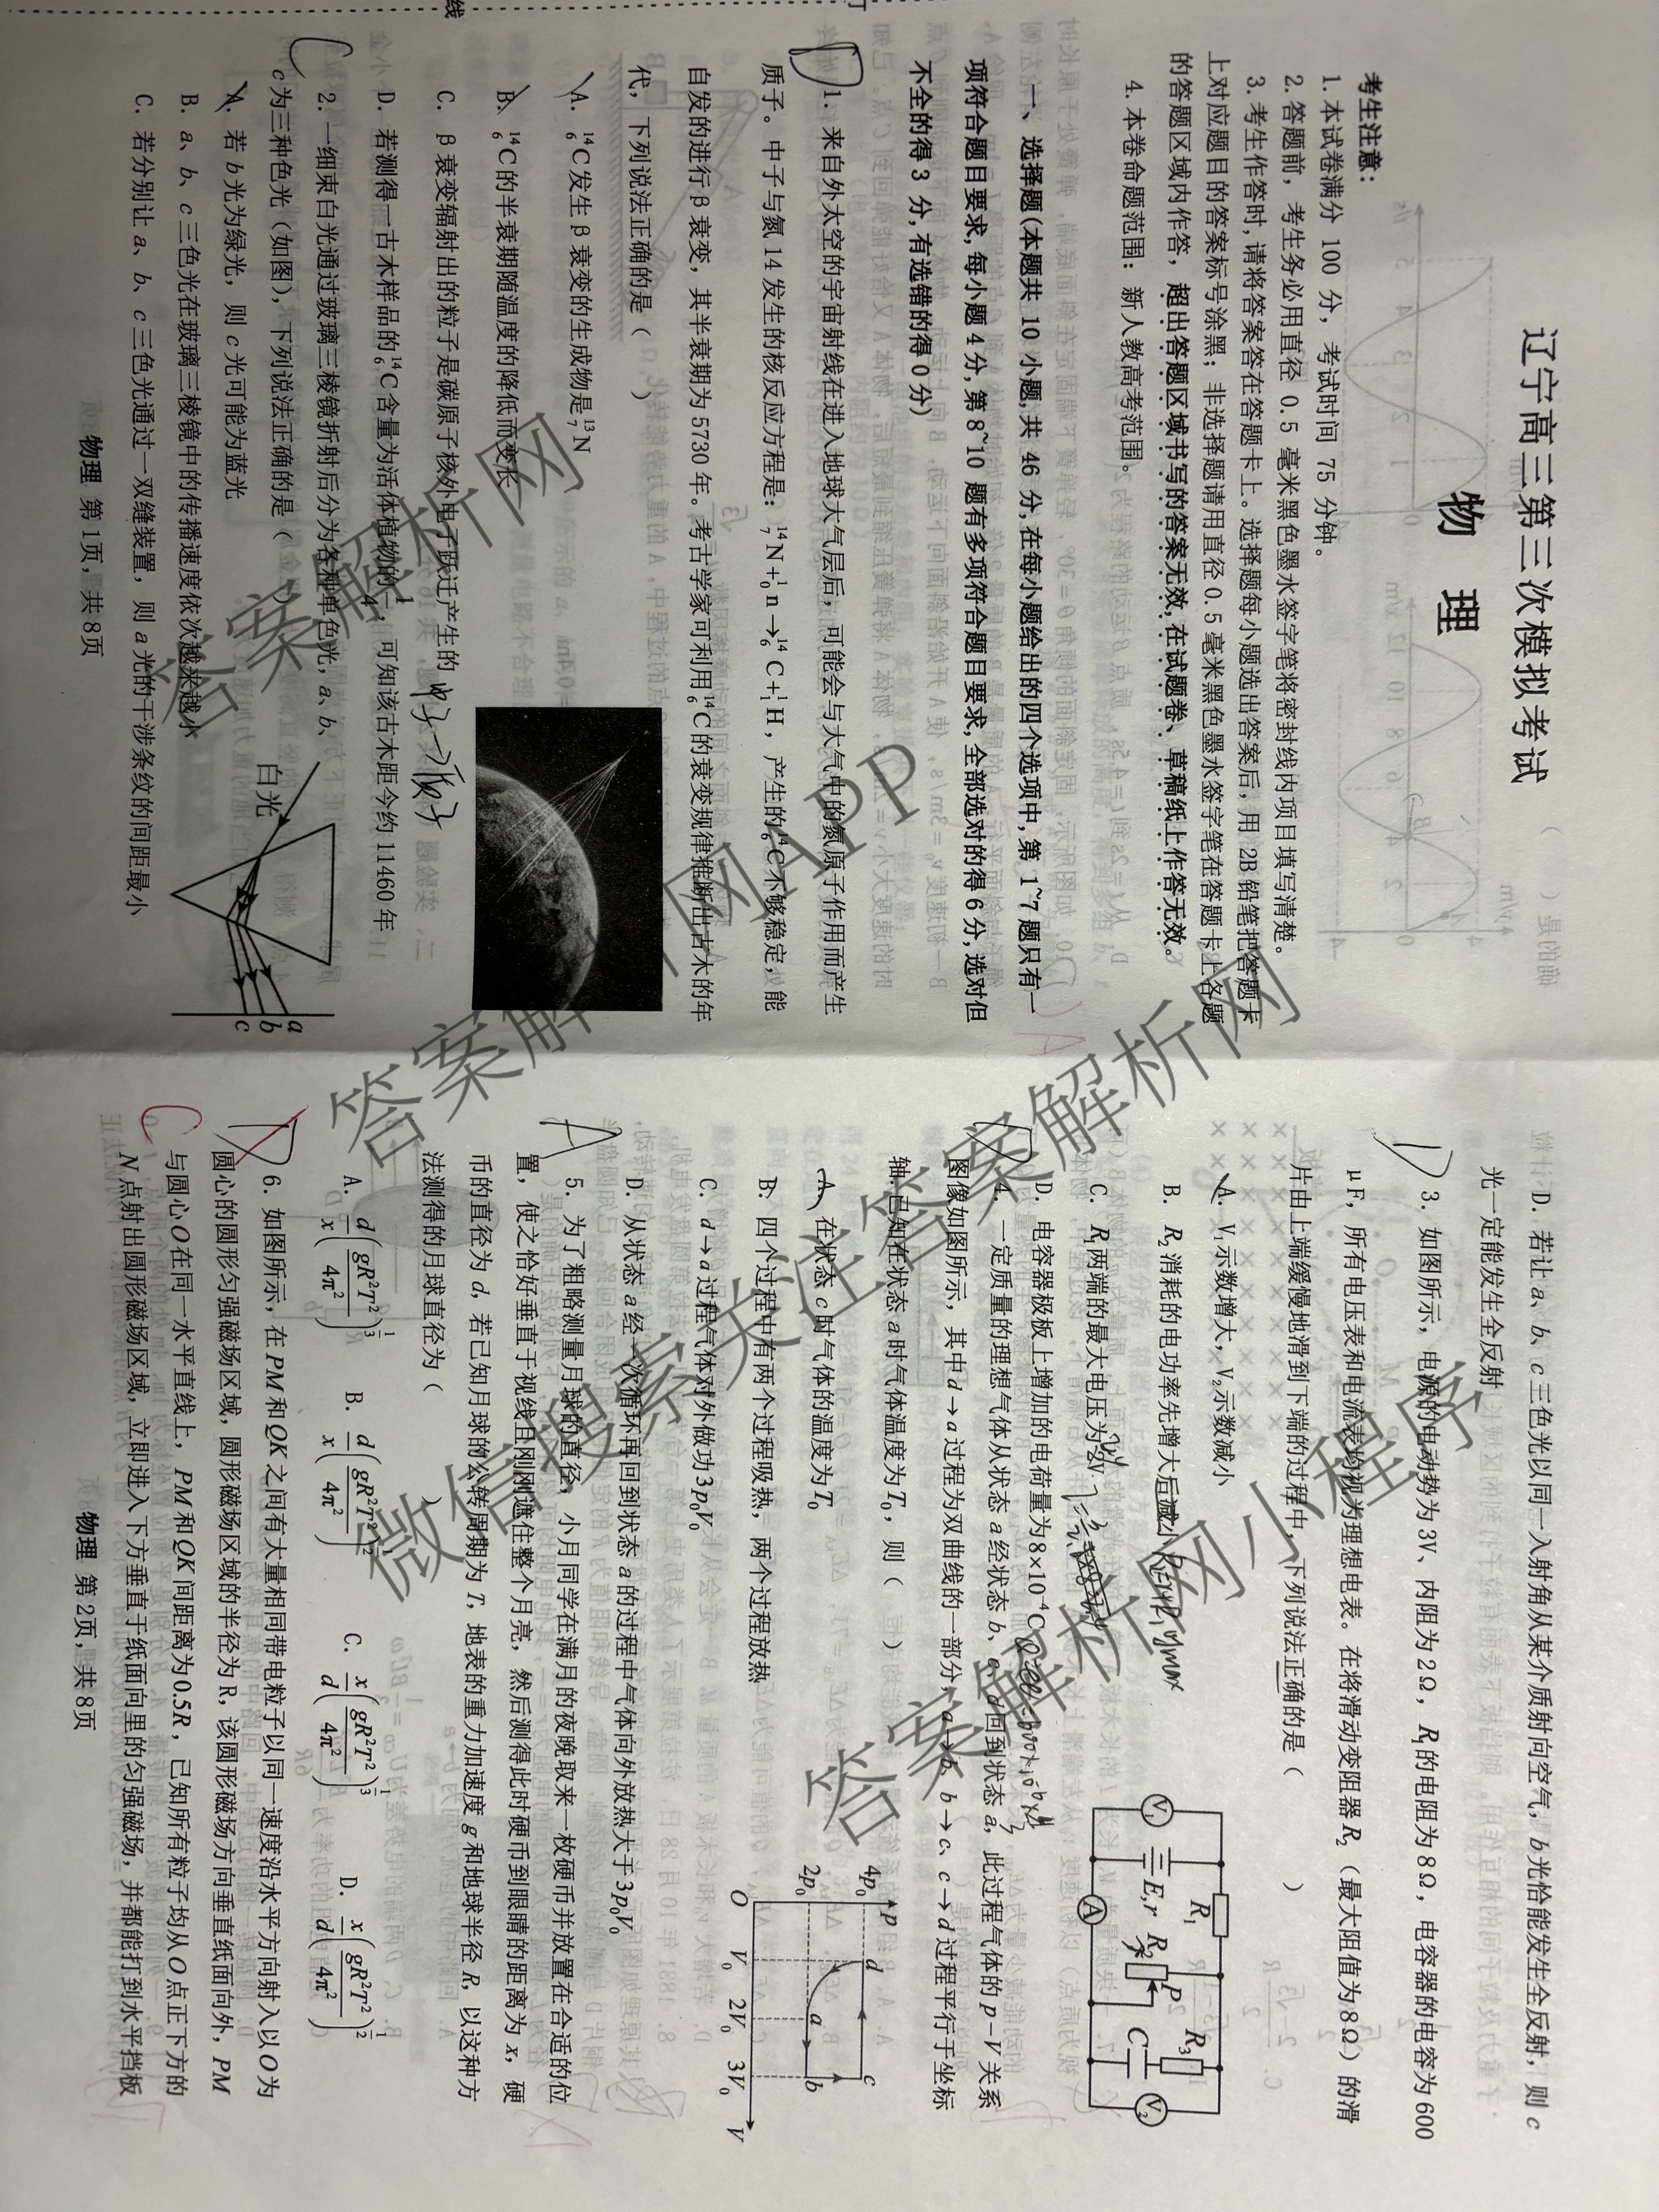 辽宁高三第三次模拟考试
物 理
考生注意：
1. 本试卷满分 100 分，考试时间 75 分钟。
2. 答题前，考生务必用直径 0.5 毫米黑色墨水签字笔将密封线内项目填写清楚。
3. 考生作答时，请将答案答在答题卡上。选择题每小题选出答案后，用 2B 铅笔把答题卡
上对应题目的答案标号涂黑；非选择题请用直径 0.5 毫米黑色墨水签字笔在答题卡上各题
的答题区域内作答，超出答题区域书写的答案无效，在试题卷、草稿纸上作答无效。
4. 本卷命题范围：新人教高考范围。
一、选择题(本题共 10 小题，共 46 分，在每小题给出的四个选项中，第 1~7 题只有一
项符合题目要求，每小题 4 分，第 8~10 题有多项符合题目要求，全部选对的得 6 分，选对但
不全的得 3 分，有选错的得 0 分)
D
1. 来自外太空的宇宙射线在进入地球大气层后，可能会与大气中的氮原子作用而产生
质子。中子与氮 14 发生的核反应方程是：¹⁴₇N+¹₀n→¹⁴₆C+¹₁H，产生的¹⁴₆C不够稳定，能
自发的进行 β 衰变，其半衰期为 5730 年。考古学家可利用¹⁴₆C的衰变规律推断出古木的年
代，下列说法正确的是（ ）
A. ¹⁴₆C发生 β 衰变的生成物是¹³₇N
B. ¹⁴₆C的半衰期随温度的降低而变长
C. β 衰变辐射出的粒子是碳原子核外电子跃迁产生的
中子→质子
D. 若测得一古木样品的¹⁴₆C含量为活体植物的1/4，可知该古木距今约 11460 年
C
2. 一细束白光通过玻璃三棱镜折射后分为各种单色光，a、b、
c为三种色光（如图），下列说法正确的是（
A. 若 b 光为绿光，则 c 光可能为蓝光
B. a、b、c 三色光在玻璃三棱镜中的传播速度依次越来越小
C. 若分别让 a、b、c 三色光通过一双缝装置，则 a 光的干涉条纹的间距最小
白光
a
b
c
物理 第 1页，共 8页
D. 若让 a、b、c 三色光以同一入射角从某介质射向空气，b 光恰能发生全反射，则 c
光一定能发生全反射
D
3. 如图所示，电源的电动势为 3V、内阻为 2Ω，R₁的电阻为 8Ω，电容器的电容为 600
μF，所有电压表和电流表均视为理想电表。在将滑动变阻器 R₂（最大阻值为 8Ω）的滑
片由上端缓慢地滑到下端的过程中，下列说法正确的是（ ）
A. V₁示数增大，V₂示数减小
B. R₂消耗的电功率先增大后减小
C. R₁两端的最大电压为2V
D. 电容器极板上增加的电荷量为 8×10⁻⁴C
V₁
E,r
R₁
R₂
P
R₃
C
A
V₂
4. 一定质量的理想气体从状态 a 经状态 b、c、d 回到状态 a，此过程气体的 p−V 关系
图像如图所示，其中 d→a 过程为双曲线的一部分，a→b、b→c、c→d 过程平行于坐标
轴。已知在状态 a 时气体温度为 T₀，则（ ）
A. 在状态 c 时气体的温度为 T₀
B. 四个过程中有两个过程吸热，两个过程放热
C. d→a 过程气体对外做功 3p₀V₀
D. 从状态 a 经一次循环再回到状态 a 的过程中气体向外放热大于 3p₀V₀
p
4p₀
2p₀
O
V₀
2V₀
3V₀
V
d
a
b
c
A
5. 为了粗略测量月球的直径，小月同学在满月的夜晚取来一枚硬币并放置在合适的位
置，使之恰好垂直于视线且刚刚遮住整个月亮，然后测得此时硬币到眼睛的距离为 x，硬
币的直径为 d，若已知月球的公转周期为 T，地表的重力加速度 g 和地球半径 R，以这种方
法测得的月球直径为（ ）
A. d/x(gR²T²/4π²)^(1/3) B. d/x(gR²T²/4π²)^(1/2) C. x/d(gR²T²/4π²)^(1/3) D. x/d(gR²T²/4π²)^(1/2)
D
C
6. 如图所示，在 PM 和 QK 之间有大量相同带电粒子以同一速度沿水平方向射入以 O 为
圆心的圆形匀强磁场区域，圆形磁场区域的半径为 R，该圆形磁场方向垂直纸面向外，PM
与圆心 O 在同一水平直线上，PM 和 QK 间距离为 0.5R，已知所有粒子均从 O 点正下方的
N 点射出圆形磁场区域，立即进入下方垂直于纸面向里的匀强磁场，并都能打到水平挡板
物理 第 2页，共 8页
答案解析网
答案解析网APP
微信搜索关注答案解析网
答案解析网小程序